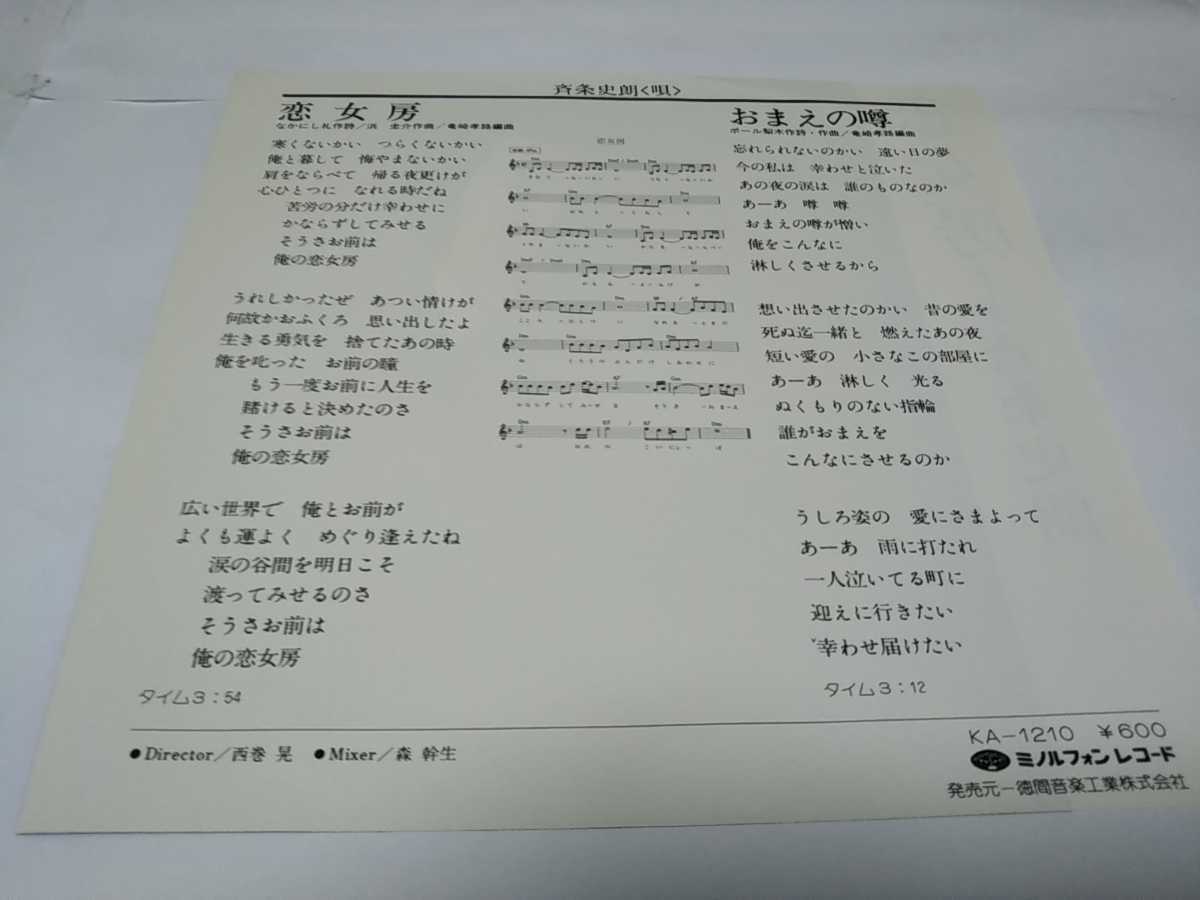 斉条史朗<唄>
恋女房
なかにし礼作詩/浜 圭介作曲/竜崎孝路編曲
寒くないかい つらくないかい
俺と暮して 悔やまないかい
肩をならべて 帰る夜更けが
心ひとつに なれる時だね
苦労の分だけ幸わせに
かならずしてみせる
そうさお前は
俺の恋女房
うれしかったぜ あつい情けが
何故かおふくろ 思い出したよ
生きる勇気を 捨てたあの時
俺を叱った お前の瞳
もう一度お前に人生を
賭けると決めたのさ
そうさお前は
俺の恋女房
広い世界で 俺とお前が
よくも運よく めぐり逢えたね
涙の谷間を明日こそ
渡ってみせるのさ
そうさお前は
俺の恋女房
タイム3:54
恋女房
おまえの噂
ポール梨木作詩・作曲/竜崎孝路編曲
忘れられないのかい 遠い日の夢
今の私は 幸わせと泣いた
あの夜の涙は 誰のものなのか
あーあ 噂 噂
おまえの噂が憎い
俺をこんなに
淋しくさせるから
想い出させたのかい 昔の愛を
死ぬ迄一緒と 燃えたあの夜
短い愛の 小さなこの部屋に
あーあ 淋しく 光る
ぬくもりのない指輪
誰がおまえを
こんなにさせるのか
うしろ姿の 愛にさまよって
あーあ 雨に打たれ
一人泣いてる町に
迎えに行きたい
幸わせ届けたい
タイム3:12
●Director/西巻 晃 ●Mixer/森 幹生
KA-1210 ¥600
ミノルフォンレコード
発売元-徳間音楽工業株式会社